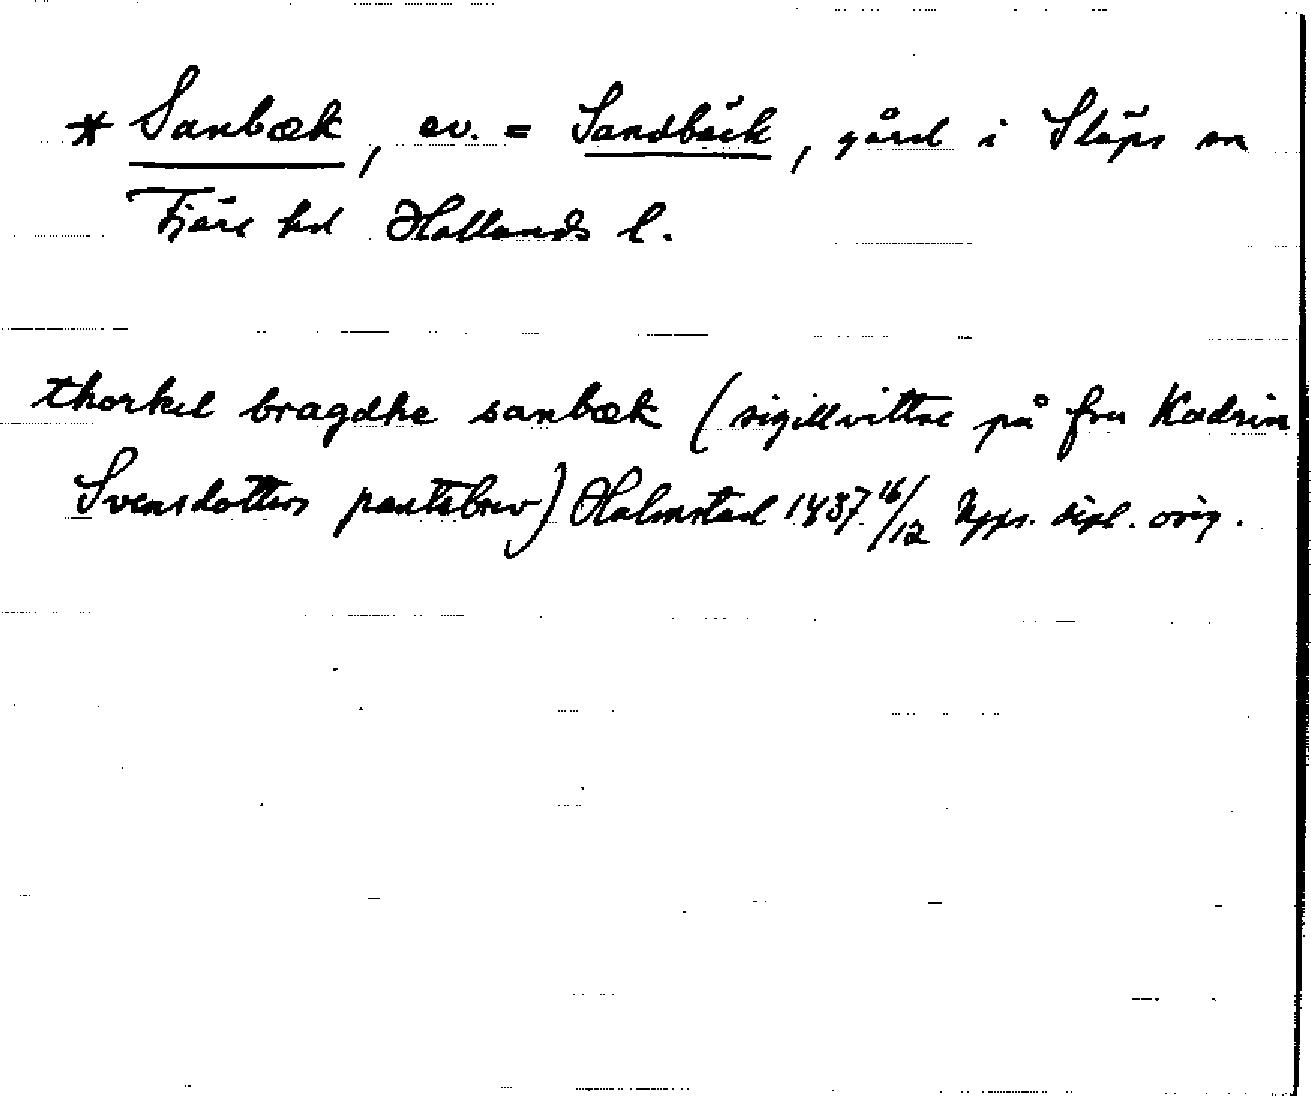 * Sanbæk, ev. = Sandbäck, gård i Släps sn
Fjäre hd Hallands l.
thorkel bragdhe sanbæk (sigillvittne på fru Kadrin
Svensdotters pantebrev) Halmstad 1437 16/12 Upps. dipl. orig.